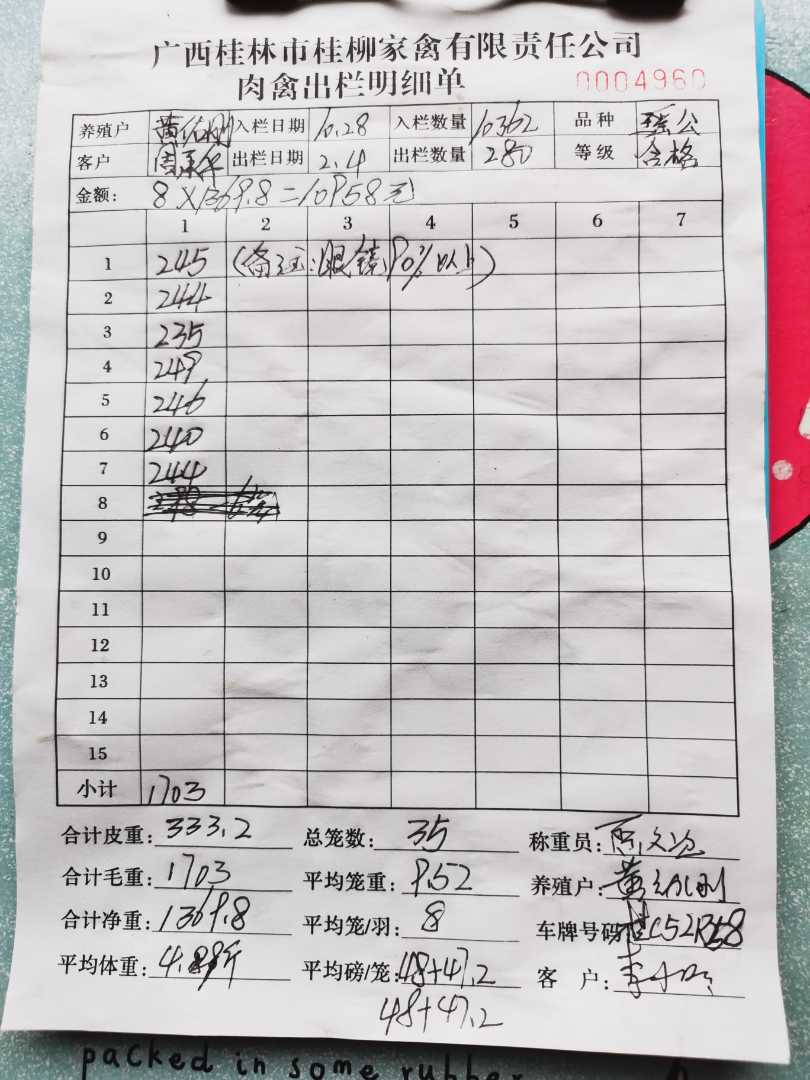 广西桂林市桂柳家禽有限责任公司
肉禽出栏明细单 0004960
养殖户 黄 刚 入栏日期 10.28 入栏数量 10362 品种 公
客户 周 出栏日期 2.4 出栏数量 280 等级 合格
金额: 8×1369.8=10958元
1 2 3 4 5 6 7
1 245 (备注:眼镜90%以上)
2 244
3 235
4 249
5 246
6 240
7 244
8
9
10
11
12
13
14
15
小计 1703
合计皮重: 333.2 总笼数: 35 称重员:
合计毛重: 1703 平均笼重: 9.52 养殖户: 黄 刚
合计净重: 1369.8 平均笼/羽: 8 车牌号码 桂C52R58
平均体重: 4.89斤 平均磅/笼: 48+47.2 客 户: 李
48+47.2
packed in some rubber